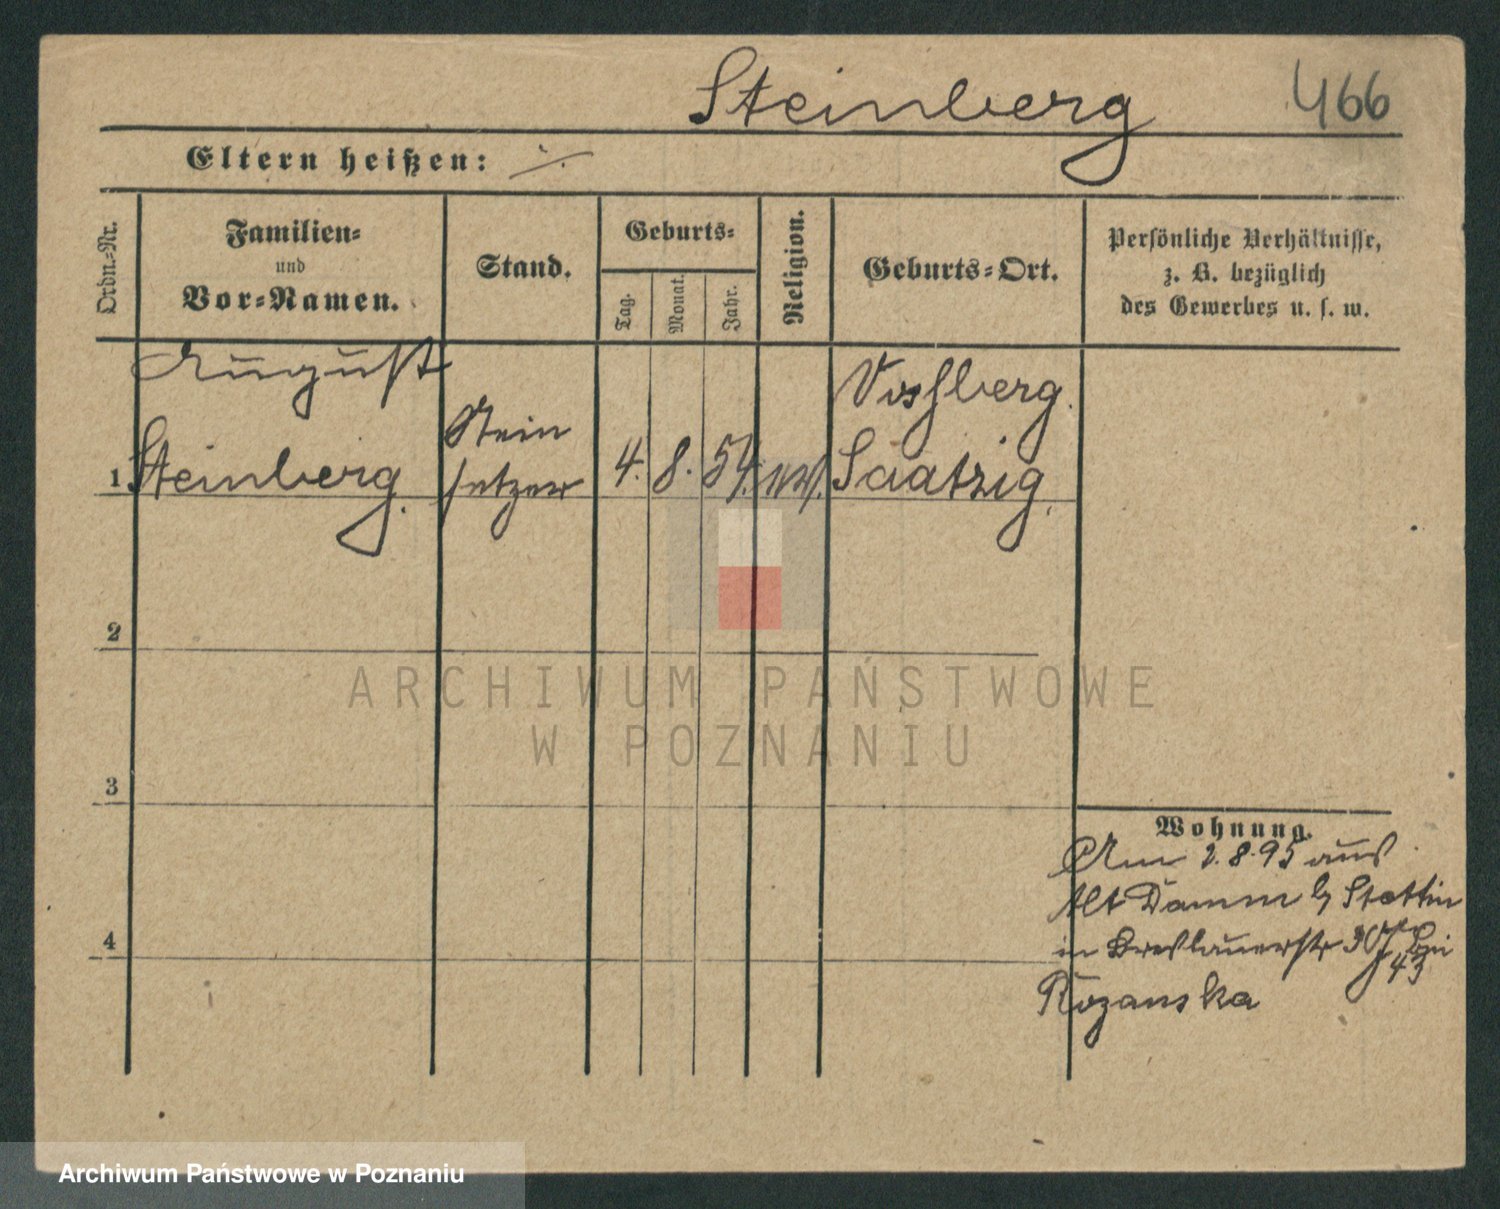 Steinberg 466
Eltern heißen: ./.
Ordn.-Nr.
Familien-
und
Vor-Namen.
Stand.
Geburts-
Tag.
Monat.
Jahr.
Religion.
Geburts-Ort.
Persönliche Verhältnisse,
z. B. bezüglich
des Gewerbes u. s. w.
August
Steinberg.
Stein
setzer
Voßberg.
Saatzig.
1
4. 8. 54.
2
3
4
Wohnung.
Am 2.8.95 aus
Alt Damm b/ Stettin
in Breslauerstr bei
Rozanska
ARCHIWUM PAŃSTWOWE
W POZNANIU
Archiwum Państwowe w Poznaniu